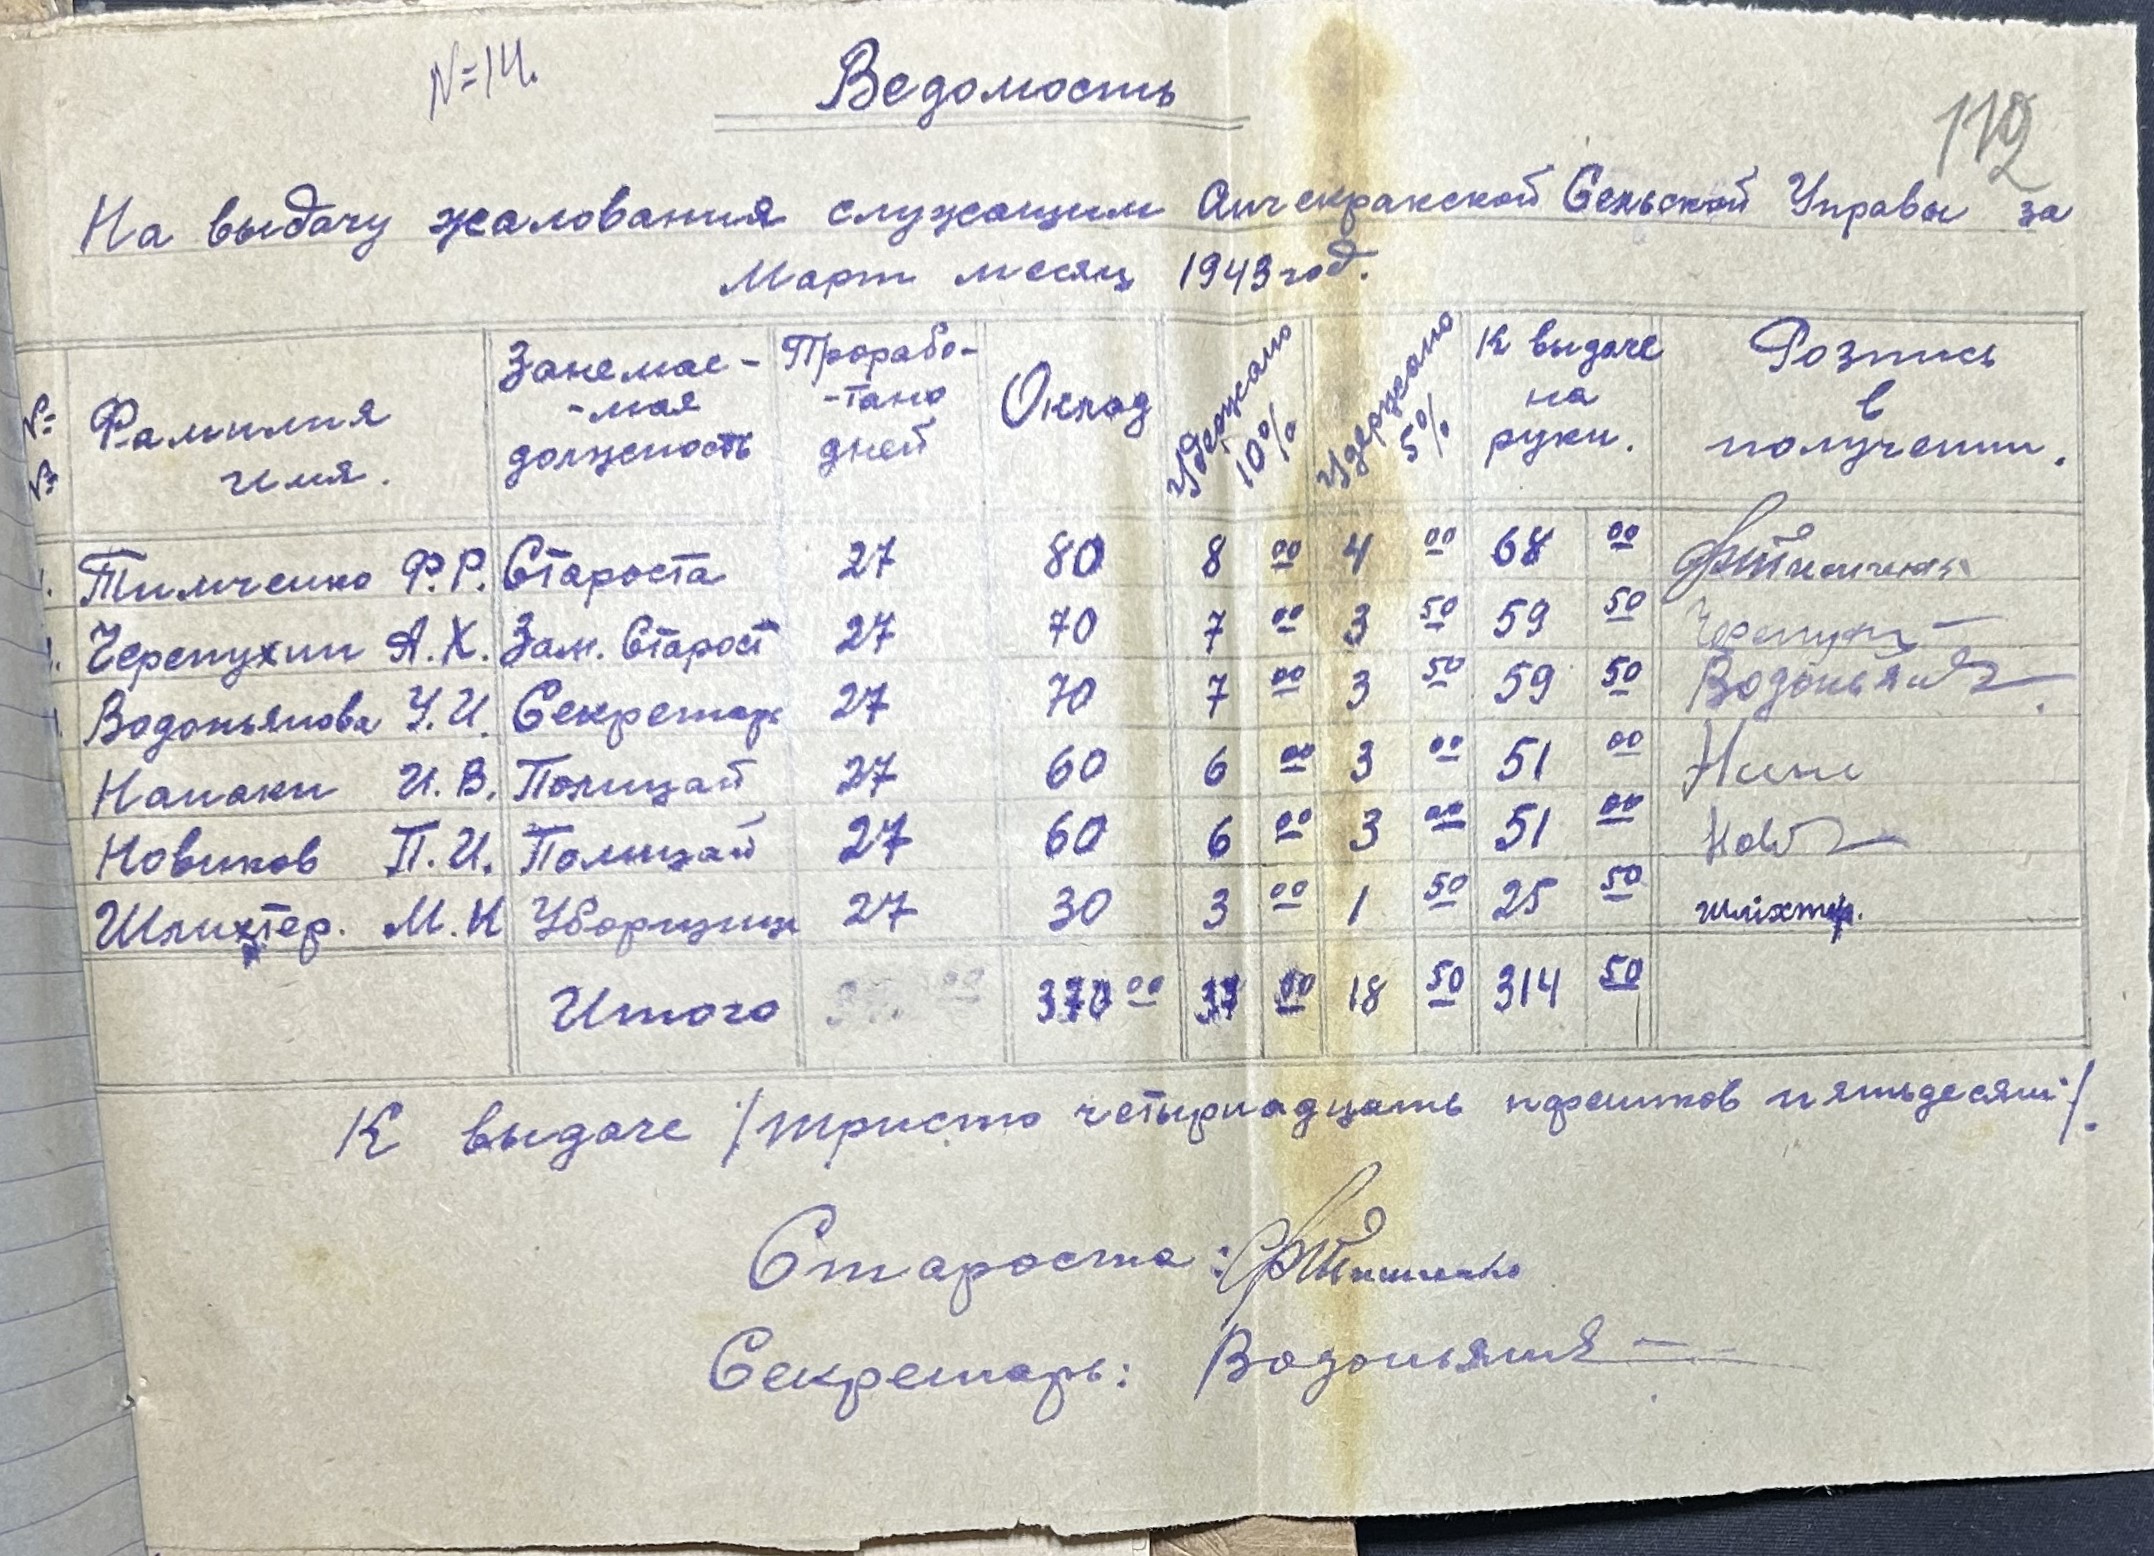 N=14.
Ведомость
112
На выдачу жалования служащим Аичекракской Сельской Управы за
Март месяц 1943 год.
№ № Фамилия имя. Занемае-мая должность Прорабо-тано дней Оклад Удержано 10% Удержано 5% К выдаче на руки. Розпись в получении.
Тимченко Ф.Р. Староста 27 80 8 00 4 00 68 00
Черепухин А.Х. Зам. Старост 27 70 7 00 3 50 59 50 Черепухин
Водопьянова У.И. Секретарь 27 70 7 00 3 50 59 50 Водопьян
Напаки И.В. Полицай 27 60 6 00 3 00 51 00
Новиков П.И. Полицай 27 60 6 00 3 00 51 00 Нов
Шлихтер. М.К Уборщиц 27 30 3 00 1 50 25 50 шліхтер.
Итого 370 00 37 00 18 50 314 50
К выдаче /:тристо четырнадцать пфенигов пятьдесят:/.
Староста: Тимченко
Секретарь: Водопьян